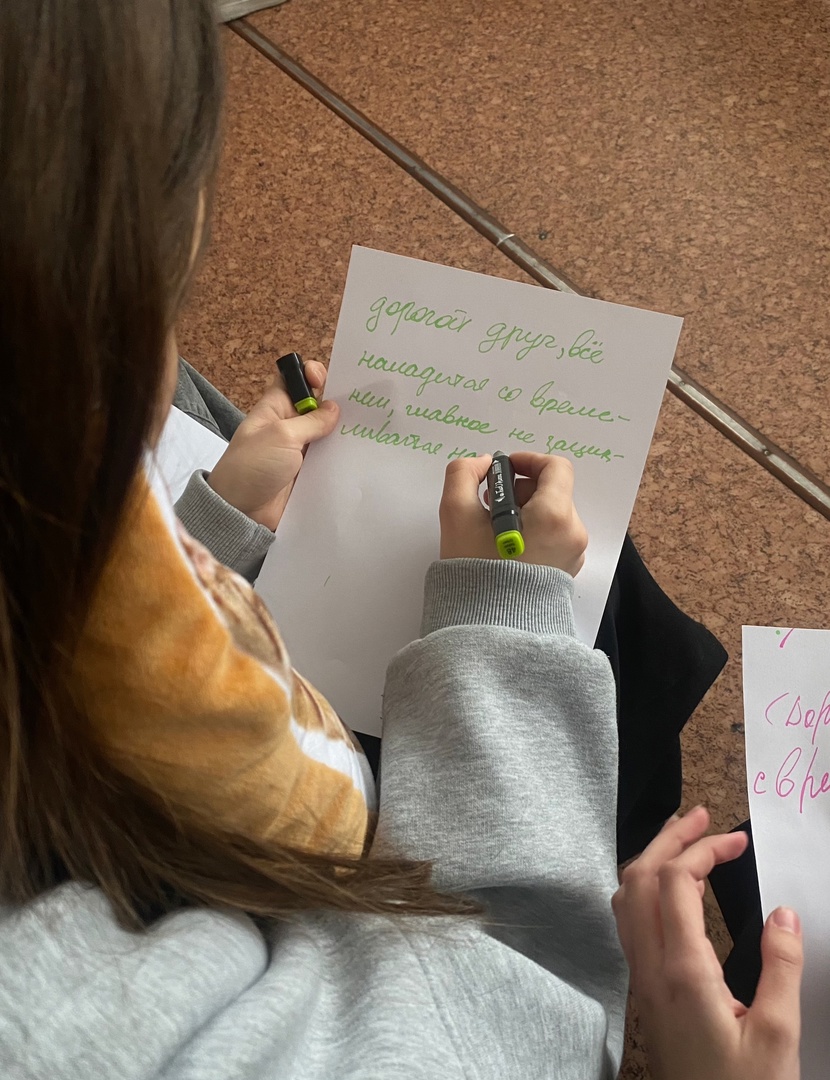 дорогой друг, всё
наладится со време-
нем, главное не зацик-
ливаться на
(Дор
с вре